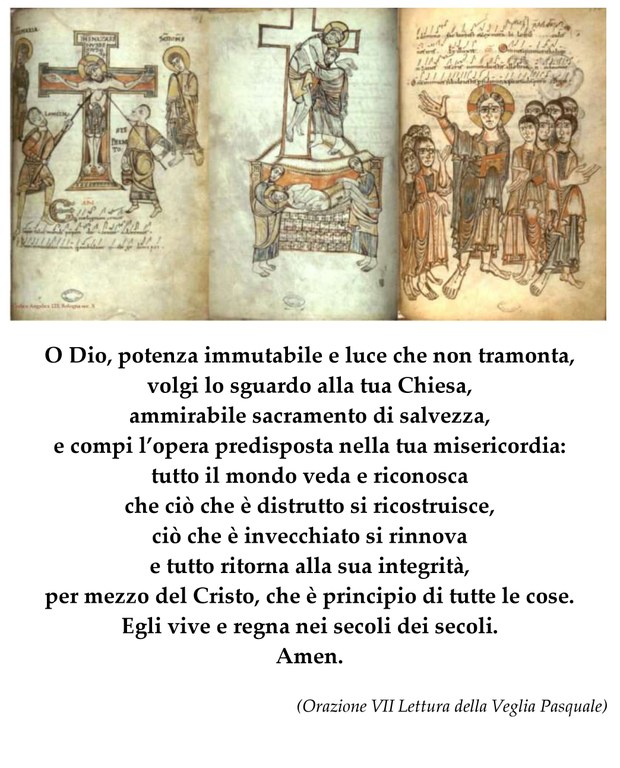 O Dio, potenza immutabile e luce che non tramonta,
volgi lo sguardo alla tua Chiesa,
ammirabile sacramento di salvezza,
e compi l’opera predisposta nella tua misericordia:
tutto il mondo veda e riconosca
che ciò che è distrutto si ricostruisce,
ciò che è invecchiato si rinnova
e tutto ritorna alla sua integrità,
per mezzo del Cristo, che è principio di tutte le cose.
Egli vive e regna nei secoli dei secoli.
Amen.
(Orazione VII Lettura della Veglia Pasquale)